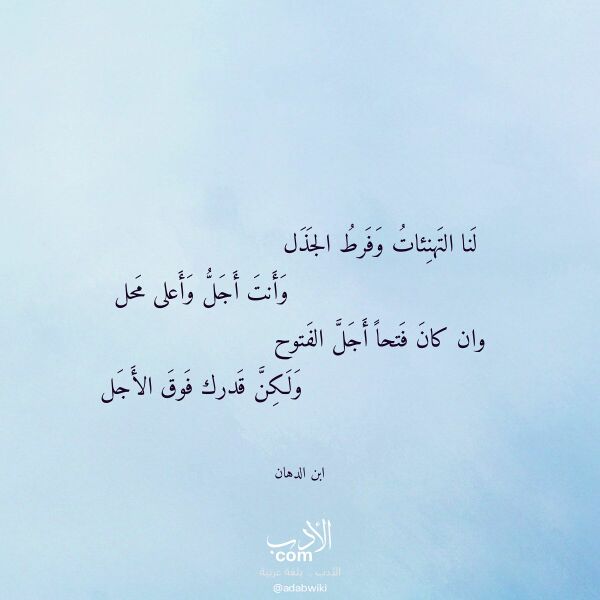 لَنا التَهنِئاتُ وَفَرطُ الجَذَل
وَأَنتَ أَجَلُّ وَأَعلى مَحل
وان كانَ فَتحاً أَجَلَّ الفَتوح
وَلَكِنَّ قَدرك فَوقَ الأَجَل
ابن الدهان
الأدب
com
الأدب .. بلغة عربية
@adabwiki